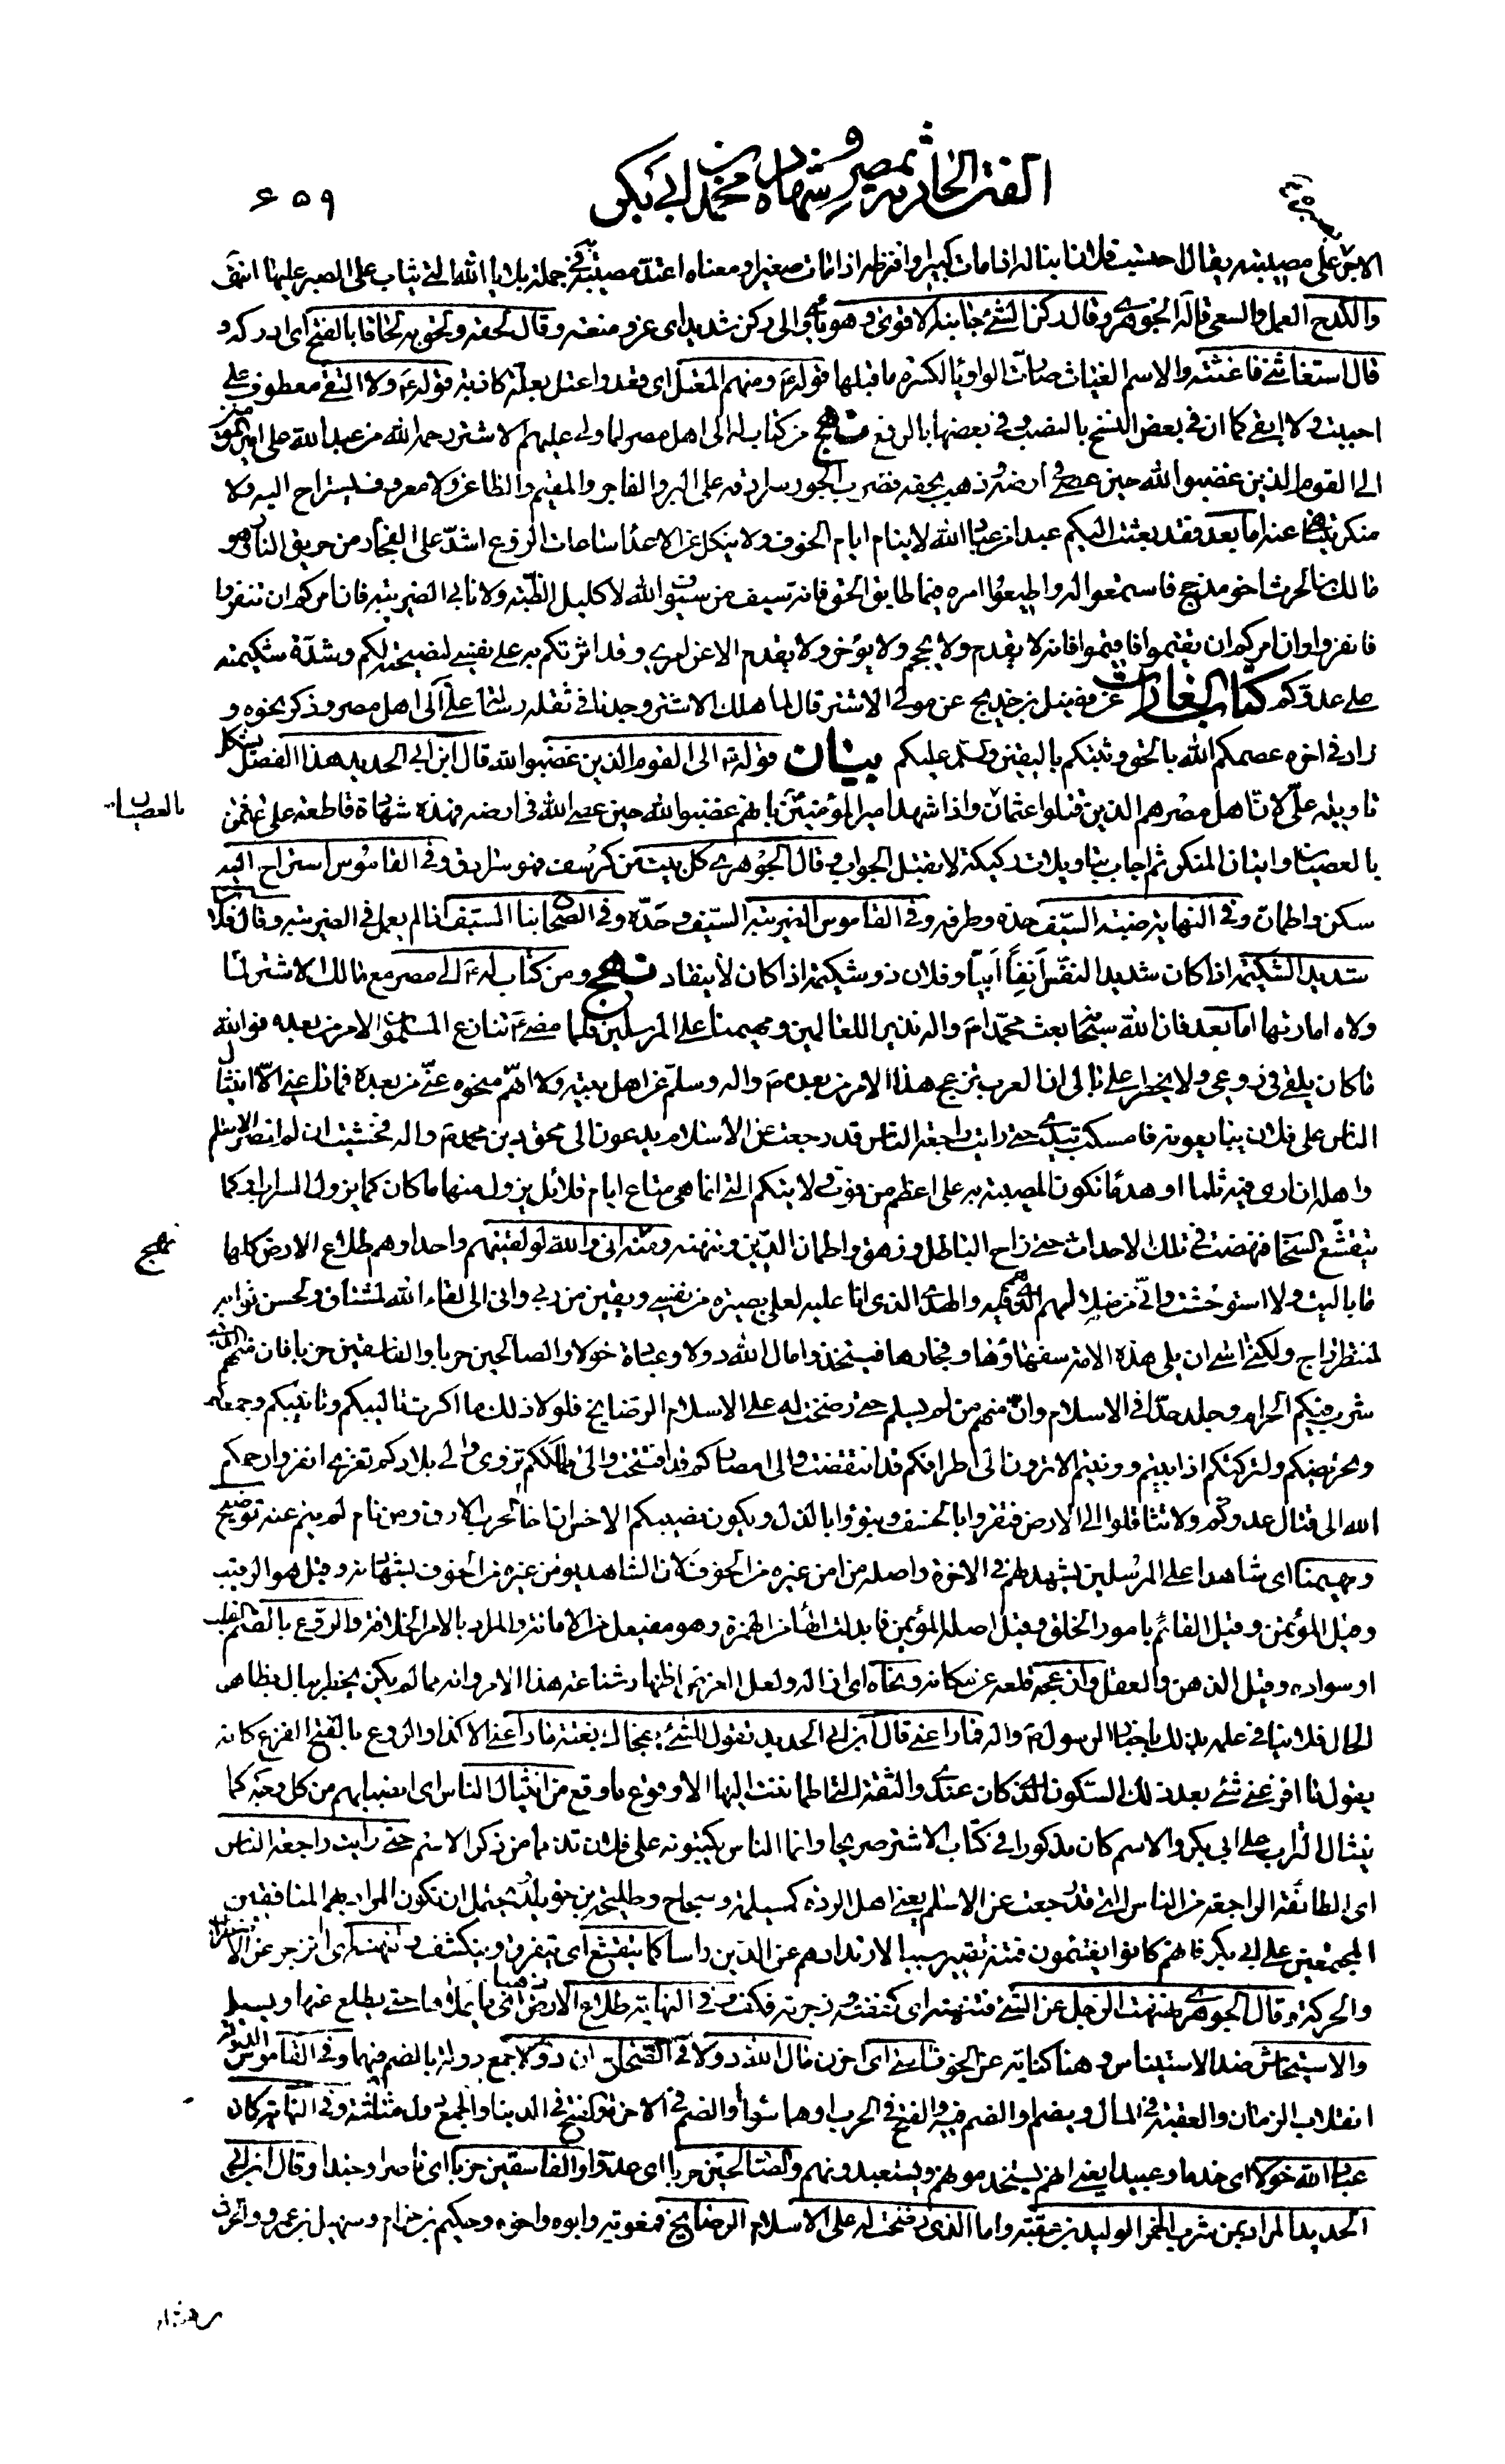 الفتن الحادثة بمصر و شهادة محمد بن ابی بکر
۶۵۹
الاجر علی مصیبته یقال احتسب فلان ابنا له اذا مات کبیرا و افترطه اذا مات صغیرا و معناه اعتد مصیبته فی جملة بلایا الله التی یثاب علی الصبر علیها انتهی
والکدح العمل والسعی قاله الجوهری و قال رکن الشیٔ جانبه الاقوی وهو یأوی الی رکن شدید ای عز و منعة و قال لحقه و لحق به لحاقا بالفتح ای ادرکه و
قال استغاثنی فاغثته والاسم الغیاث صارت الواو یا لکسرة ما قبلها قوله ع و منهم المعتل ای قعد واعتل بعلة کاذبة قوله ع ولا التقی معطوف علی
احببت ولا ابقی کما ان فی بعض النسخ بالنصب و فی بعضها بالرفع نهج من کتاب له الی اهل مصر لما ولی علیهم الاشتر رحمه الله من عبد الله علی امیر المؤمنین
الی القوم الذین غضبوا لله حین عصی فی ارضه و ذهب بحقه فضرب الجور سرادقه علی البر والفاجر والمقیم والظاعن فلا معروف یستراح الیه ولا
منکر یتناهی عنه اما بعد فقد بعثت الیکم عبدا من عباد الله لا ینام ایام الخوف ولا ینکل عن الاعداء ساعات الروع اشد علی الفجار من حریق النار و هو
مالک بن الحرث اخو مذحج فاسمعوا له واطیعوا امره فیما طابق الحق فانه سیف من سیوف الله لا کلیل الظبة ولا نابی الضریبة فان امرکم ان تنفروا
فانفروا وان امرکم ان تقیموا فاقیموا فانه لا یقدم ولا یحجم ولا یؤخر ولا یقدم الا عن امری وقد اثرتکم به علی نفسی لنصیحته لکم و شدة شکیمته
علی عدوکم کتاب الغارات عن فضیل بن خدیج عن مولی الاشتر قال لما هلک الاشتر وجدنا فی ثقله رسالة علی الی اهل مصر وذکر نحوه و
زاد فی اخره عصمکم الله بالحق و ثبتکم بالیقین والسلم علیکم بیان قوله ع الی القوم الذین غضبوا لله قال ابن ابی الحدید هذا الفصل یشکل
تاویله علی لان اهل مصر هم الذین قتلوا عثمان واذا شهد امیر المؤمنین بانهم غضبوا لله حین عصی الله فی ارضه فهذه شهادة قاطعة علی عثمن
بالعصیان
بالعصیان واتیان المنکر ثم اجاب بتاویلات رکیکة لا یقبل الجواب و قال الجوهری کل بیت من کرسف فهو سرادق وفی القاموس استراح الیه
سکن واطمان وفی النهایة ضبة السیف حده وطرفه وفی القاموس الضریبة السیف و حده وفی الصحاح نبا السیف اذا لم یعمل فی الضریبة وقال فلان
شدید الشکیمة اذا کان شدید النفس انفا ابیا وفلان ذو شکیمة اذا کان لا ینقاد نهج ومن کتاب له ع الی مصر مع مالک الاشتر لما
ولاه امارتها اما بعد فان الله سبحانه بعث محمدا ص واله نذیرا للعالمین ومهیمنا علی المرسلین فلما مضی ص تنازع المسلمون الامر من بعده فوالله
ما کان یلقی فی روعی ولا یخطر علی بالی ان العرب تزعج هذا الامر من بعده ص واله وسلم عن اهل بیته ولا انهم منحوه عنی من بعده فما راعنی الا انثیال
الناس علی فلان یبایعونه فامسکت بیدی حتی رایت راجعة الناس قد رجعت عن الاسلام یدعون الی محق دین محمد ص واله فخشیت ان لم انصر الاسلام
واهله ان اری فیه ثلما او هدما تکون المصیبة به علی اعظم من فوت ولایتکم التی انما هی متاع ایام قلائل یزول منها ما کان کما یزول السراب او کما
یتقشع السحاب فنهضت فی تلک الاحداث حتی زاح الباطل وزهق واطمان الدین وتنهنه ومنه انی والله لو لقیتهم واحدا وهم طلاع الارض کلها
نهج
ما بالیت ولا استوحشت وانی من ضلالهم الذی هم فیه والهدی الذی انا علیه لعلی بصیرة من نفسی ویقین من ربی وانی الی لقاء الله لمشتاق ولحسن ثوابه
لمنتظر راج ولکننی اسی ان یلی هذه الامة سفهاؤها وفجارها فیتخذوا مال الله دولا وعباده خولا والصالحین حربا والفاسقین حزبا فان منهم الذی
شرب فیکم الحرام وجلد حدا فی الاسلام وان منهم من لم یسلم حتی رضخت له علی الاسلام الرضایخ فلولا ذلک ما اکثرت تالیبکم وتانیبکم وجمعکم
وتحریضکم ولترکتکم اذ ابیتم وونیتم الا ترون الی اطرافکم قد انتقضت والی امصارکم قد افتتحت والی ممالککم تزوی والی بلادکم تغزی انفروا رحمکم
الله الی قتال عدوکم ولا تثاقلوا الی الارض فتقروا بالخسف وتبوؤا بالذل ویکون نصیبکم الاخس ان اخا الحرب الارق ومن نام لم ینم عنه توضیح
ومهیمنا ای شاهدا علی المرسلین یشهد لهم فی الاخرة واصله من امن غیره من الخوف لان الشاهد یؤمن غیره من الخوف بشهادته وقیل هو الرقیب
وقیل المؤتمن وقیل القائم بامور الخلق وقیل اصله المؤیمن فابدلت الهاء من الهمزة وهو مفیعل من الامانة والمراد بالامر الخلافة والروع بالضم القلب
او سواده وقیل الذهن والعقل وازعجه قلعه عن مکانه ونحاه ای ازاله ولعل الغرض اظهار شناعة هذا الامر وانه مما لم یکن یخطر ببال بظاهر
الحال فلا ینافی علمه بذلک باخبار الرسول ص واله فما راعنی قال ابن ابی الحدید تقول للشیٔ یفجاک بغتة ما راعنی الا کذا والروع بالفتح الفزع کانه
یقول ما افزعنی شیٔ بعد ذلک السکون الذی کان عندی والثقة التی اطماننت الیها الا وقوع ما وقع من انثیال الناس ای انصبابهم من کل وجه کما
ینثال التراب علی ابی بکر والاسم کان مذکورا فی کتاب الاشتر صریحا وانما الناس یکتبونه علی فلان تذمما من ذکر الاسم حتی رایت راجعة الناس
ای الطائفة الراجعة من الناس التی قد رجعت عن الاسلم یعنی اهل الردة کمسیلمة وسجاح وطلیحة بن خویلد ویحتمل ان تکون المراد بهم المنافقین
المجتمعین علی ابی بکر فانهم کانوا یغتنمون فتنة تصیر سببا لارتدادهم عن الدین راسا کما یتقشع ای یتفرق وینکشف وتنهنه ای انزجر عن الاضطراب
والحرکة وقال الجوهری نهنهت الرجل عن الشیٔ فتنهنه ای کففته و زجرته فکف وفی النهایة طلاع الارض ذهبا ای ما یملاها حتی یطلع عنها ویسیل
والاستیحاش ضد الاستیناس وهنا کنایة عن الخوف اسی ای احزن مال الله دولا فی الصحاح ان دولا جمع دولة بالضم فیهما وفی القاموس الدولة
انقلاب الزمان والعقبة فی المال ویضم او الضم فیه والفتح فی الحرب او هما سواء او الضم فی الاخرة والفتح فی الدنیا والجمع دول مثلثة وفی النهایة کان
عباد الله خولا ای خدما وعبیدا یعنی انهم یستخدمونهم ویستعبدونهم والصالحین حربا ای عدوا والفاسقین حزبا ای ناصرا وجندا وقال ابن ابی
الحدید المراد بمن شرب الخمر الولید بن عقبة واما الذی رضخت له علی الاسلام الرضایخ فمعویة وابوه واخوه وحکیم بن حزام وسهیل بن عمرو والحرث